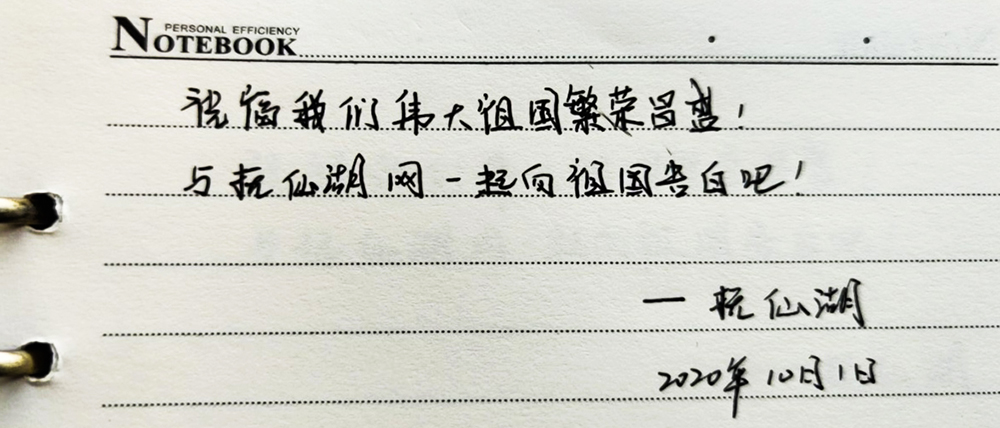 PERSONAL EFFICIENCY
NOTEBOOK
祝福我们伟大祖国繁荣昌盛!
与抚仙湖网一起向祖国告白吧!
— 抚仙湖
2020年10月1日